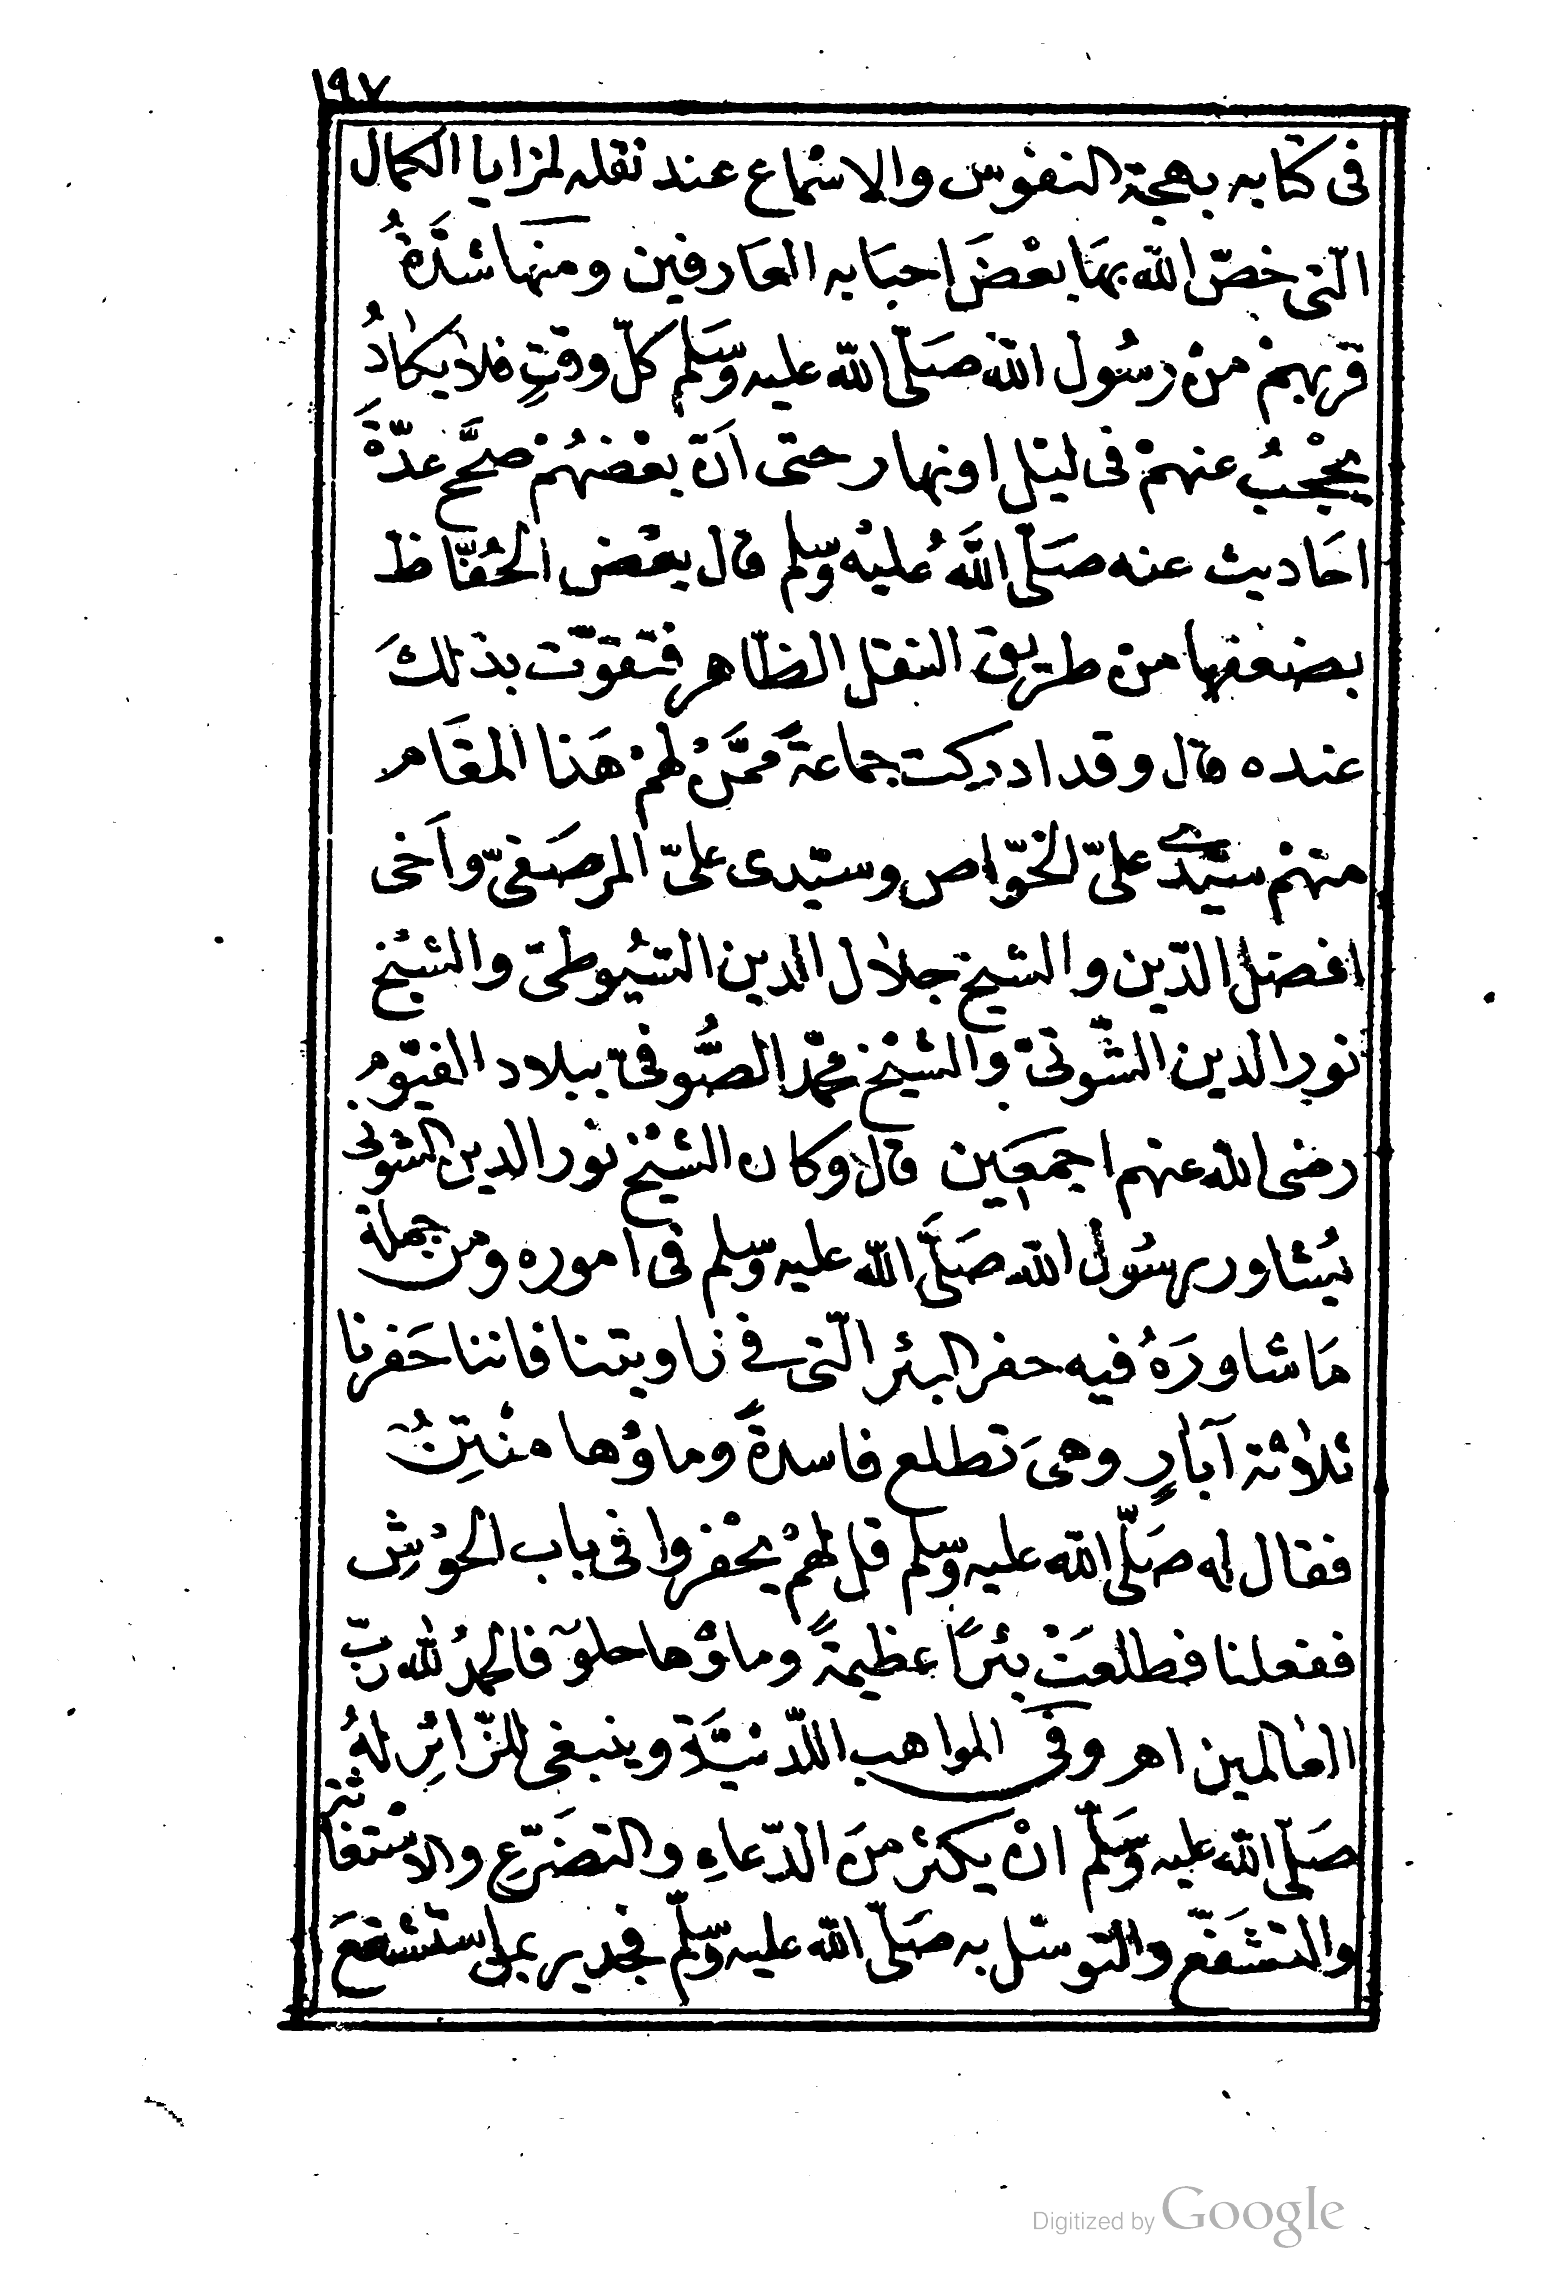 ١٩٧
فى كتابه بهجة النفوس والاسْماع عند نقله لمزايا الكمال
الّتى خصّ الله بهَا بعْضَ احبَابه العَارفين ومنهَا شدَّةُ
قربهمْ منْ رسُول الله صَلّى الله عليه وسَلّم كلّ وقتٍ فلا يكادُ
يحْجبُ عنهمْ فى ليْل اونهار حتى انّ بعْضهُمْ صحَّح عدّةَ
احَاديث عنه صَلّى اللهُ عليْه وسلّم قال بعْض الحُفّاظ
بضعفها منْ طريق النقل الظّاهر فتقوّت بذلكَ
عنده قال وقد ادركت جماعةً ممَّنْ لهمْ هَذا المقَام
منهمْ سيّدى علىّ الخوّاص وسيّدى علىّ المرصَفىّ واَخى
افضل الدّين والشيخ جلال الدين السّيُوطىّ والشيْخ
نور الدين الشّونىّ والشيْخ محمّد الصُّوفىّ ببلاد الفيّوم
رضى الله عنهم اجمعين قال وكان الشيْخ نور الدين الشونى
يُشاور رسُول الله صَلَّى الله عليه وسلّم فى اموره ومن جملة
مَا شاورَهُ فيه حفر البئر الّتى فى زاويتنا فاننا حَفرنا
ثلاثة آبارٍ وهىَ تطلع فاسدةً وماؤُها منْتِنٌ
فقال له صَلّى الله عليه وسلّم قل لهمْ يحْفروا فى باب الحوْشِ
ففعلنا فطلعَتْ بئرًا عظيمةً وماؤها حلوٌ فالحمدُ لله ربّ
العالمين اهـ وفى المواهب اللّدنيَّة وينبغى للزّائِر لهُ
صَلّى الله عليه وسَلّم انْ يكثر منَ الدّعاءِ والتضَرّعِ والاسْتغاثة
والتشَفّع والتوسّل به صَلّى الله عليه وسلّم فجدير بمن استشفعَ
Digitized by Google